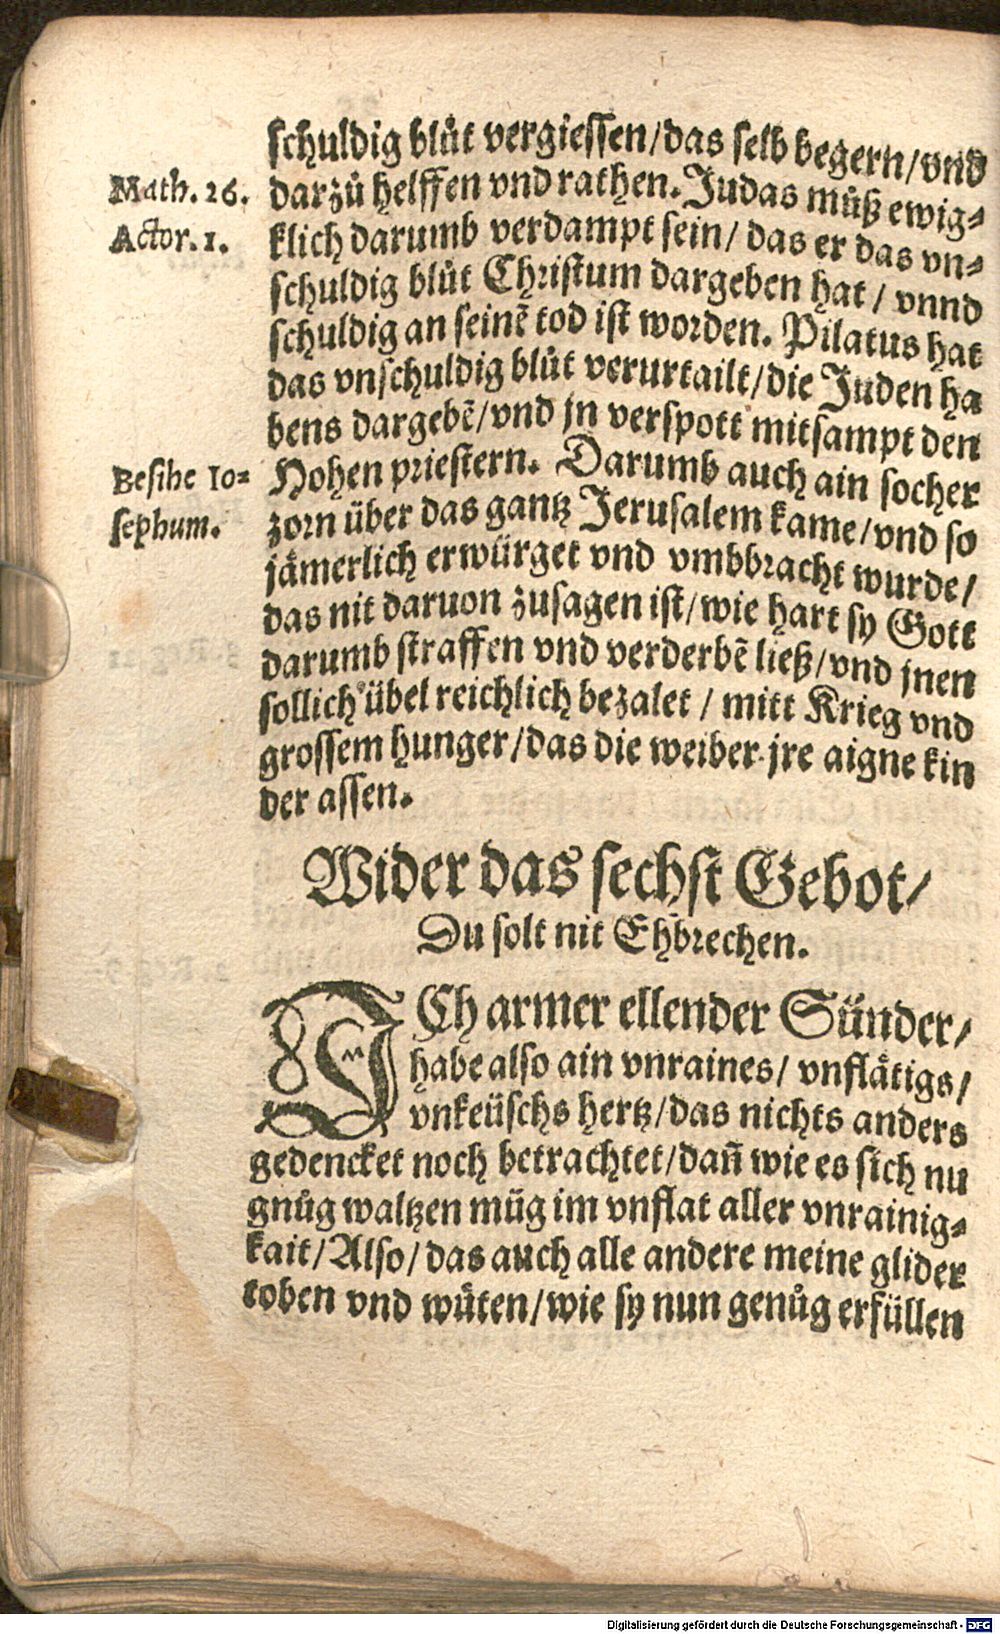 schuldig blůt vergiessen/das selb begern/vnd
Math. 26. darzů helffen vnd rathen. Judas můß ewig⸗
Actor. 1. klich darumb verdampt sein/ das er das vn⸗
schuldig blůt Christum dargeben hat / vnnd
schuldig an seinẽ tod ist worden. Pilatus hat
das vnschuldig blůt verurtailt/die Juden ha
bens dargebẽ/vnd jn verspott mitsampt den
Besihe Io⸗ Hohen priestern. Darumb auch ain socher
sephum. zorn über das gantz Jerusalem kame/vnd so
jämerlich erwürget vnd vmbbracht wurde/
das nit daruon zusagen ist/wie hart sy Gott
darumb straffen vnd verderbẽ ließ/vnd jnen
sollich übel reichlich bezalet / mitt Krieg vnd
grossem hunger/das die weiber jre aigne kin
der assen.
Wider das sechst Gebot/
Du solt nit Ehbrechen.
ICh armer ellender Sünder/
habe also ain vnraines/ vnflätigs/
vnkeüschs hertz/das nichts anders
gedencket noch betrachtet/dañ wie es sich nu
gnůg waltzen müg im vnflat aller vnrainig⸗
kait/Also/das auch alle andere meine glider
toben vnd wüten/wie sy nun genůg erfüllen
Digitalisierung gefördert durch die Deutsche Forschungsgemeinschaft - DFG